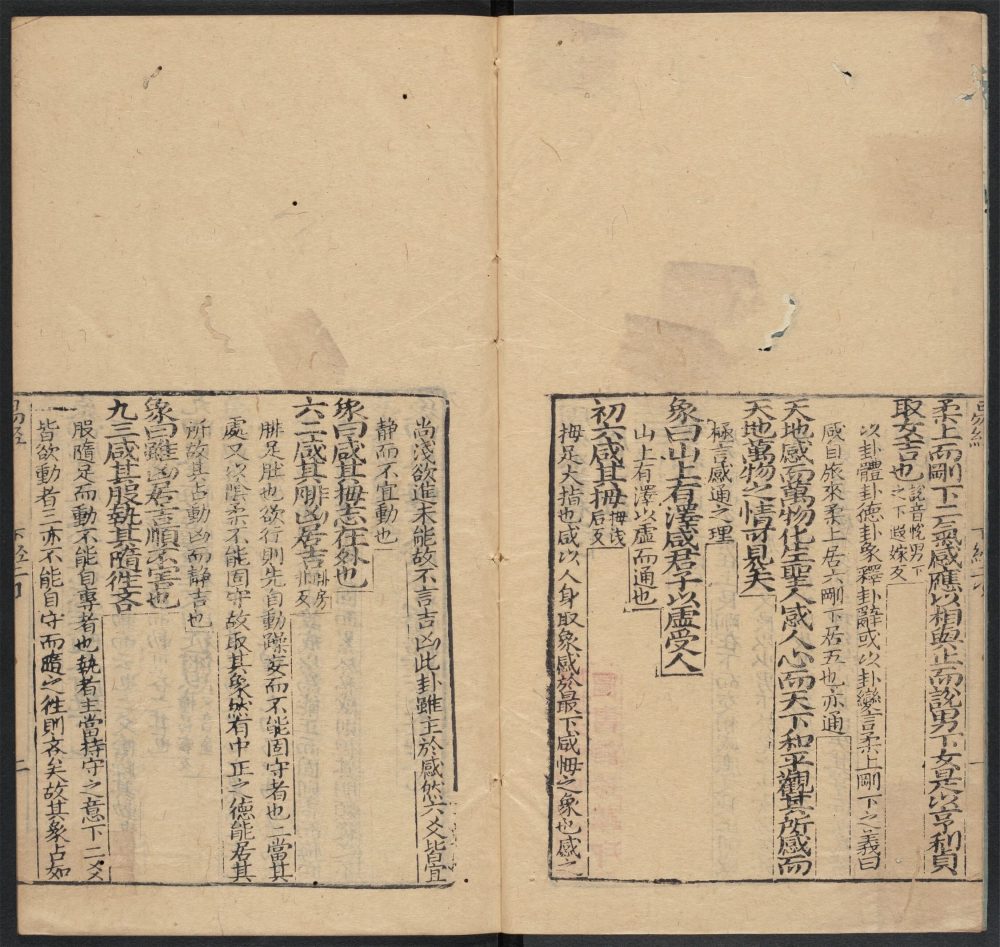 柔上而剛下二氣感應以相與止而說男下女是以亨利貞
取女吉也說音悅男下之下遐嫁反
以卦體卦德卦象釋卦辭或以卦變言柔上剛下之義曰
咸自旅來柔上居六剛下居五也亦通
天地感而萬物化生聖人感人心而天下和平觀其所感而
天地萬物之情可見矣
極言感通之理
象曰山上有澤咸君子以虛受人
山上有澤以虛而通也
初六咸其拇拇茂后反
拇足大指也咸以人身取象感於最下咸拇之象也感之
尚淺欲進未能故不言吉凶此卦雖主於感然六爻皆宜
靜而不宜動也
象曰咸其拇志在外也
六二咸其腓凶居吉腓房非反
腓足肚也欲行則先自動躁妄而不能固守者也二當其
處又以陰柔不能固守故取其象然有中正之德能居其
所故其占動凶而靜吉也
象曰雖凶居吉順不害也
九三咸其股執其隨往吝
股隨足而動不能自專者也執者主當持守之意下二爻
皆欲動者三亦不能自守而隨之往則吝矣故其象占如
易經 下經 二